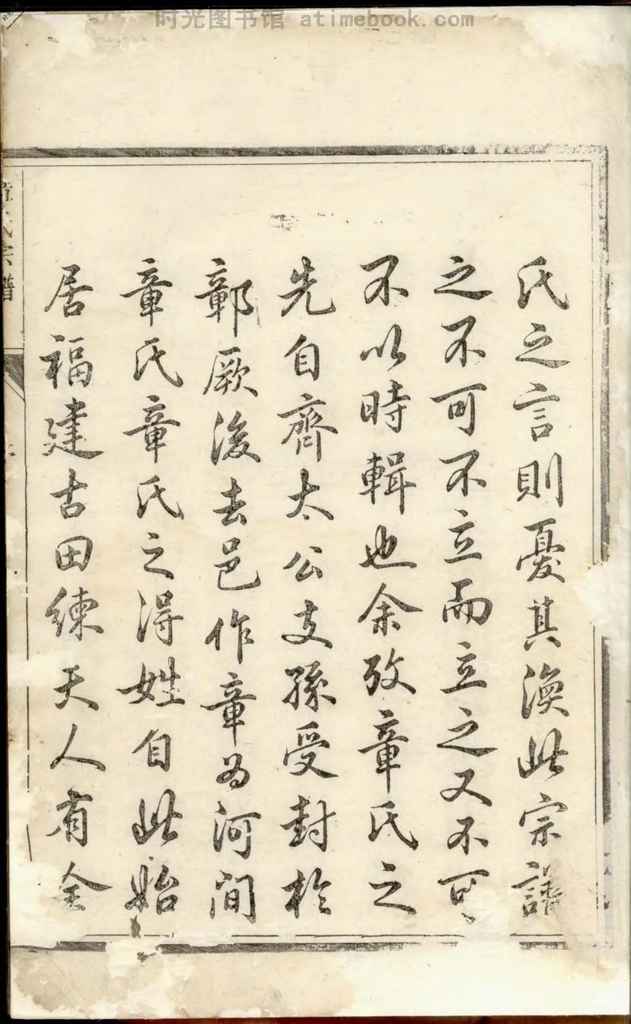 时光图书馆 atimebook.com
氏之言則憂其渙此宗譜
之不可不立而立之又不可
不以時輯也余攷章氏之
先自齊太公支孫受封於
鄣厥後去邑作章為河間
章氏章氏之得姓自此始
居福建古田練夫人有全
氏宗譜